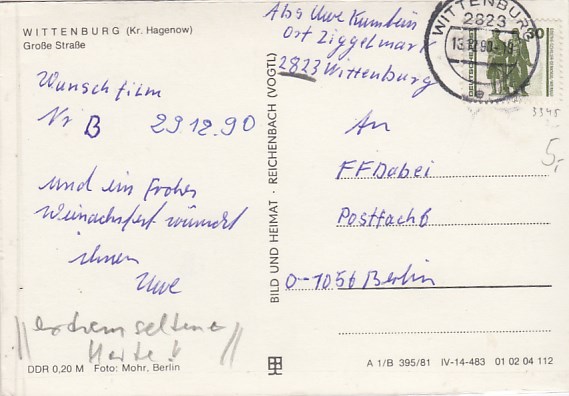 WITTENBURG (Kr. Hagenow)
Große Straße
Wunschfilm
Nr B 29.12.90
und ein Frohes
Weinachsfest wünscht
ihnen
Uwe
extrem seltene
Karte!
DDR 0,20 M Foto: Mohr, Berlin
BILD UND HEIMAT · REICHENBACH (VOGTL)
Abs Uwe
Ort Ziggelmark
2823 Wittenburg
WITTENBURG
2823
30
3345
5,-
An
FF Dabei
Postfach 6
O-1056 Berlin
A 1/B 395/81 IV-14-483 01 02 04 112